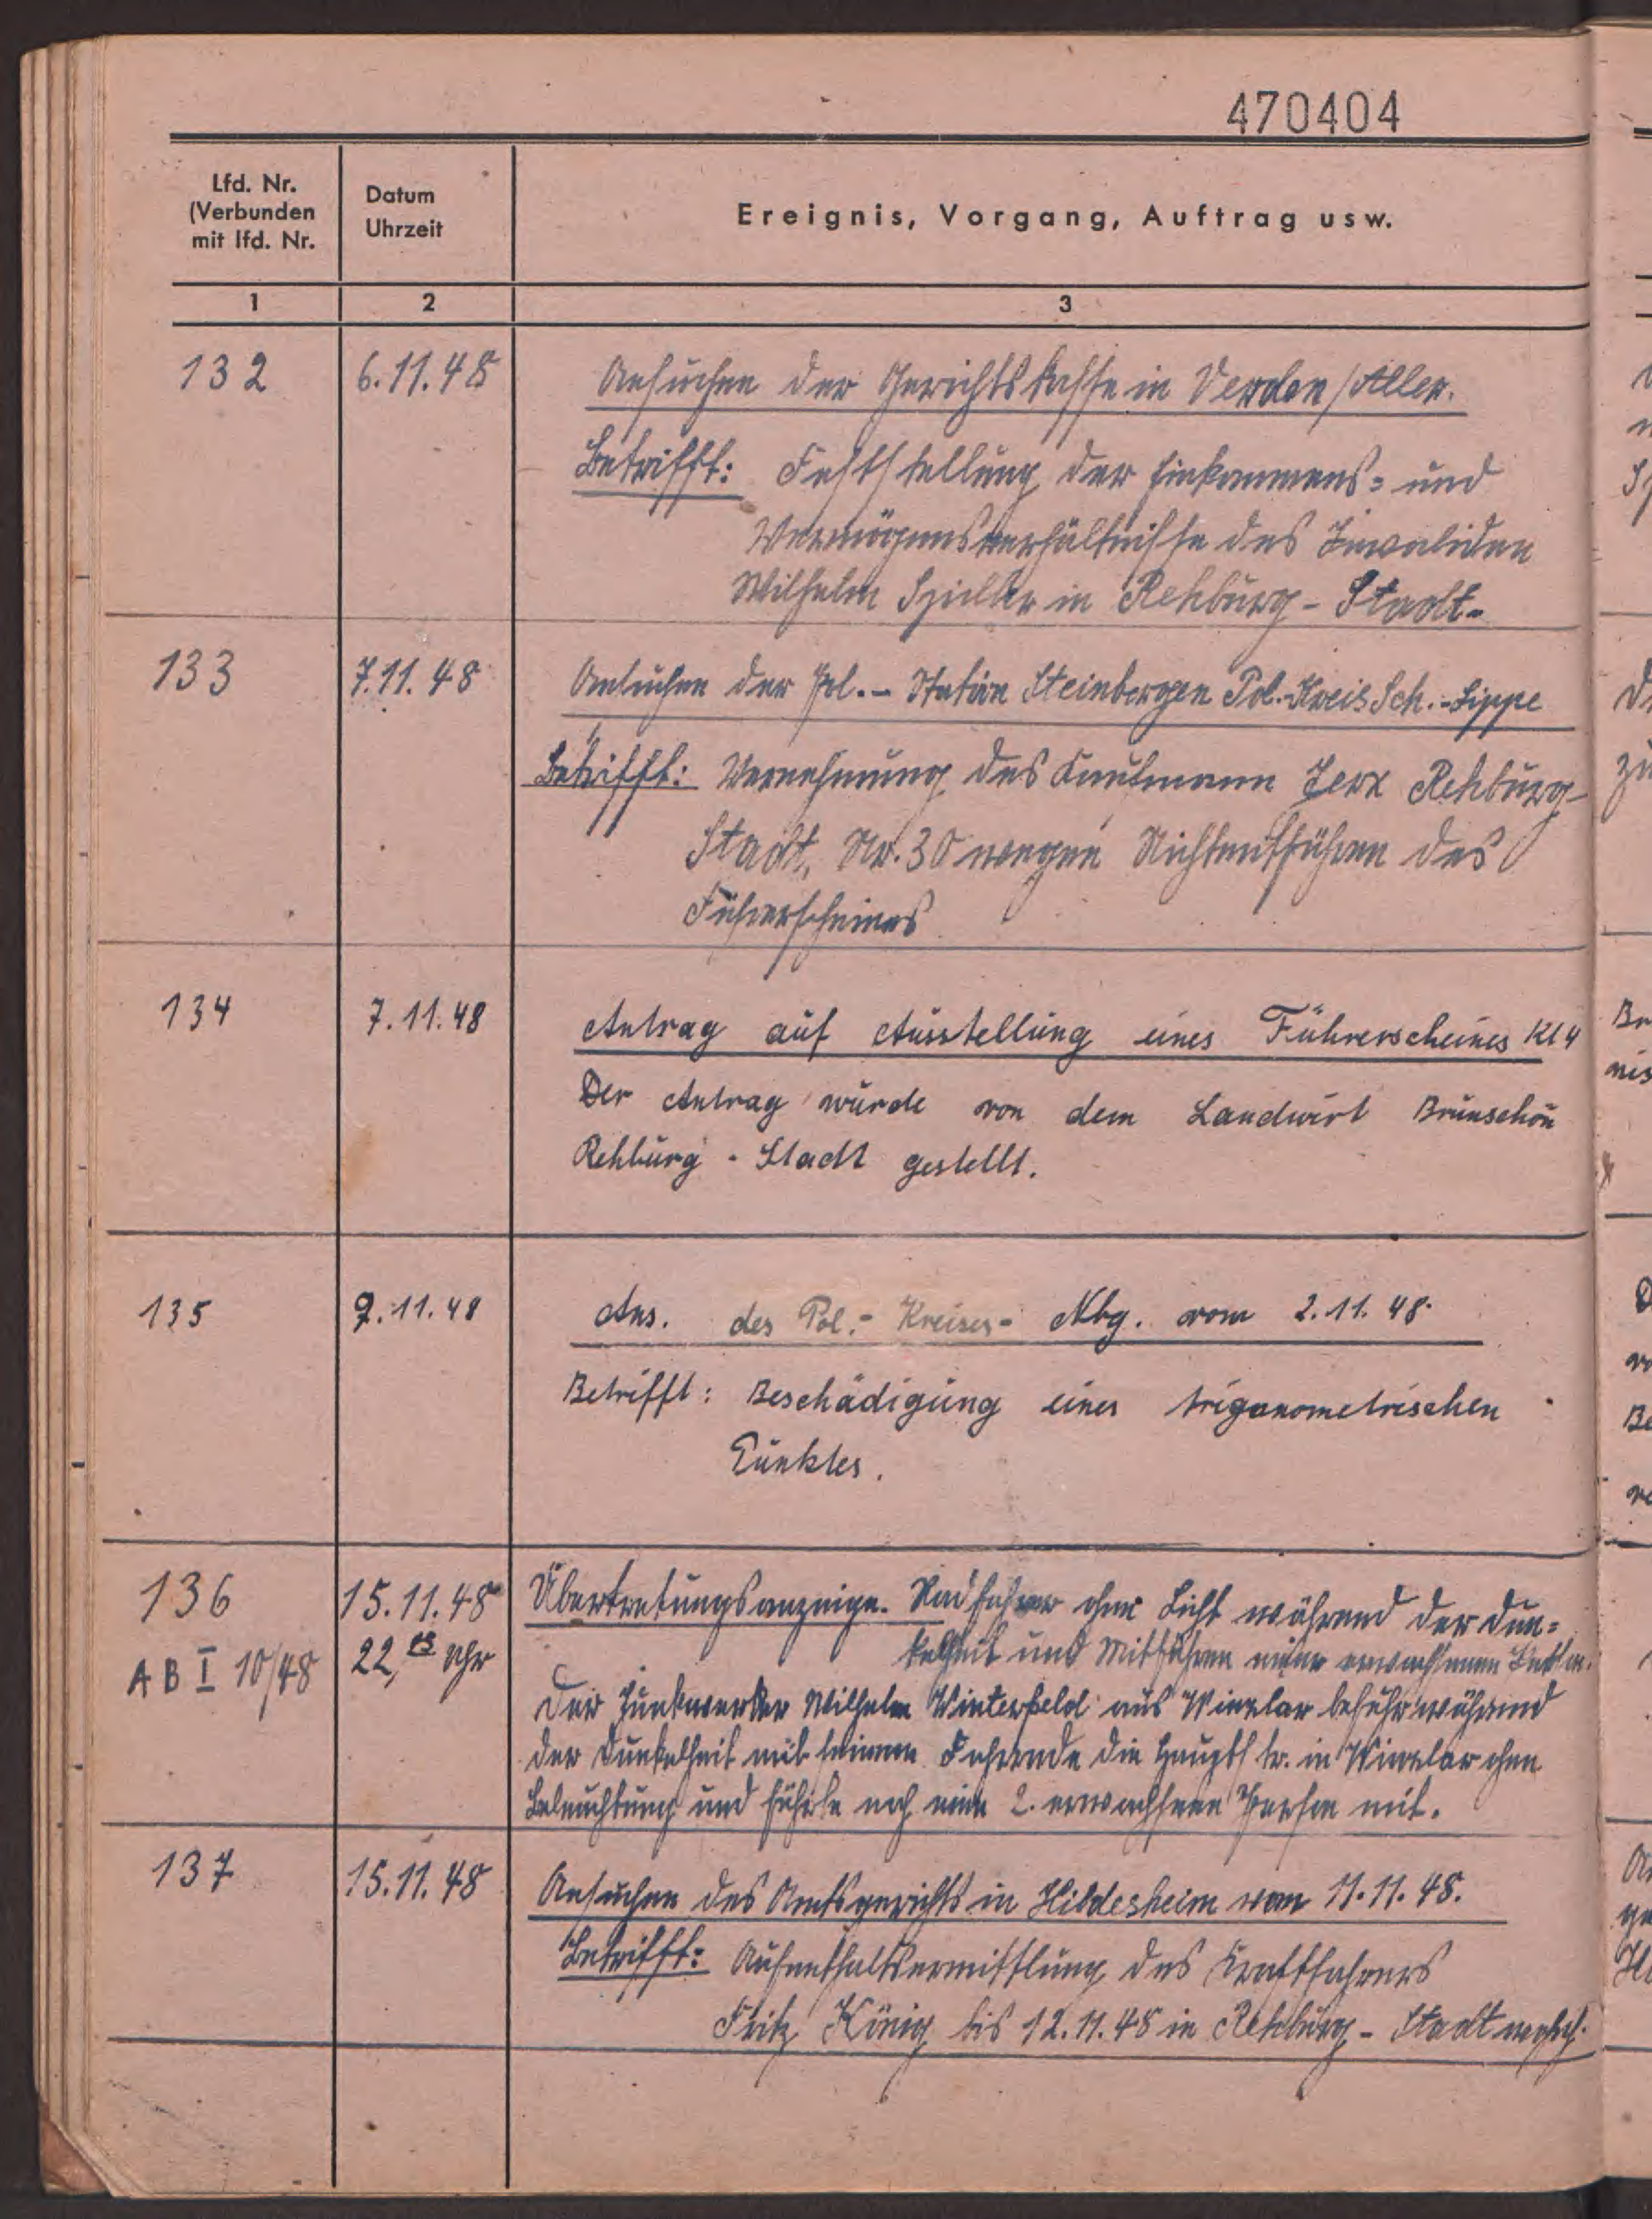 470404
Lfd. Nr.
(Verbunden
mit lfd. Nr.
Datum
Uhrzeit
Ereignis, Vorgang, Auftrag usw.
1
2
3
132
6.11.48
Ansuchen der Gerichtskasse in Verden/Aller.
Betrifft: Feststellung der Einkommens= und
Vermögensverhältnisse des Invaliden
Wilhelm in Rehburg-Stadt-
133
7.11.48
Ansuchen der Pol.-Station Steinbergen Pol.-Kreis Sch.-Lippe
Betrifft: Vernehmung des Kaufmann Jerx Rehburg-
Stadt, Nr. 30 wegen Nichtmitführen des
Führerscheines
134
7.11.48
Antrag auf Ausstellung eines Führerscheines Kl 4
Der Antrag wurde von dem Landwirt Brunschön
Rehburg - Stadt gestellt.
135
9.11.48
Ans. des Pol.- Kreises- Nbg. vom 2.11.48.
Betrifft: Beschädigung eines trigonometrischen
Punktes.
136
15.11.48
Übertretungsanzeige. Radfahrer ohne Licht während der Dun=
AB I 10/48
22, Uhr
kelheit und Mitführen einer erwachsenen
Der Wilhelm Winterfeld aus Winzlar befuhr während
der Dunkelheit mit seinem Fahrrade die Hauptstr. in Winzlar ohne
Beleuchtung und führte noch eine 2. erwachsene Person mit.
137
15.11.48
Ansuchen des Amtsgerichts in Hildesheim vom 11.11.48.
Betrifft: Aufenthaltsermittlung des Kraftfahrers
Fritz König bis 12.11.48 in Rehburg-Stadt